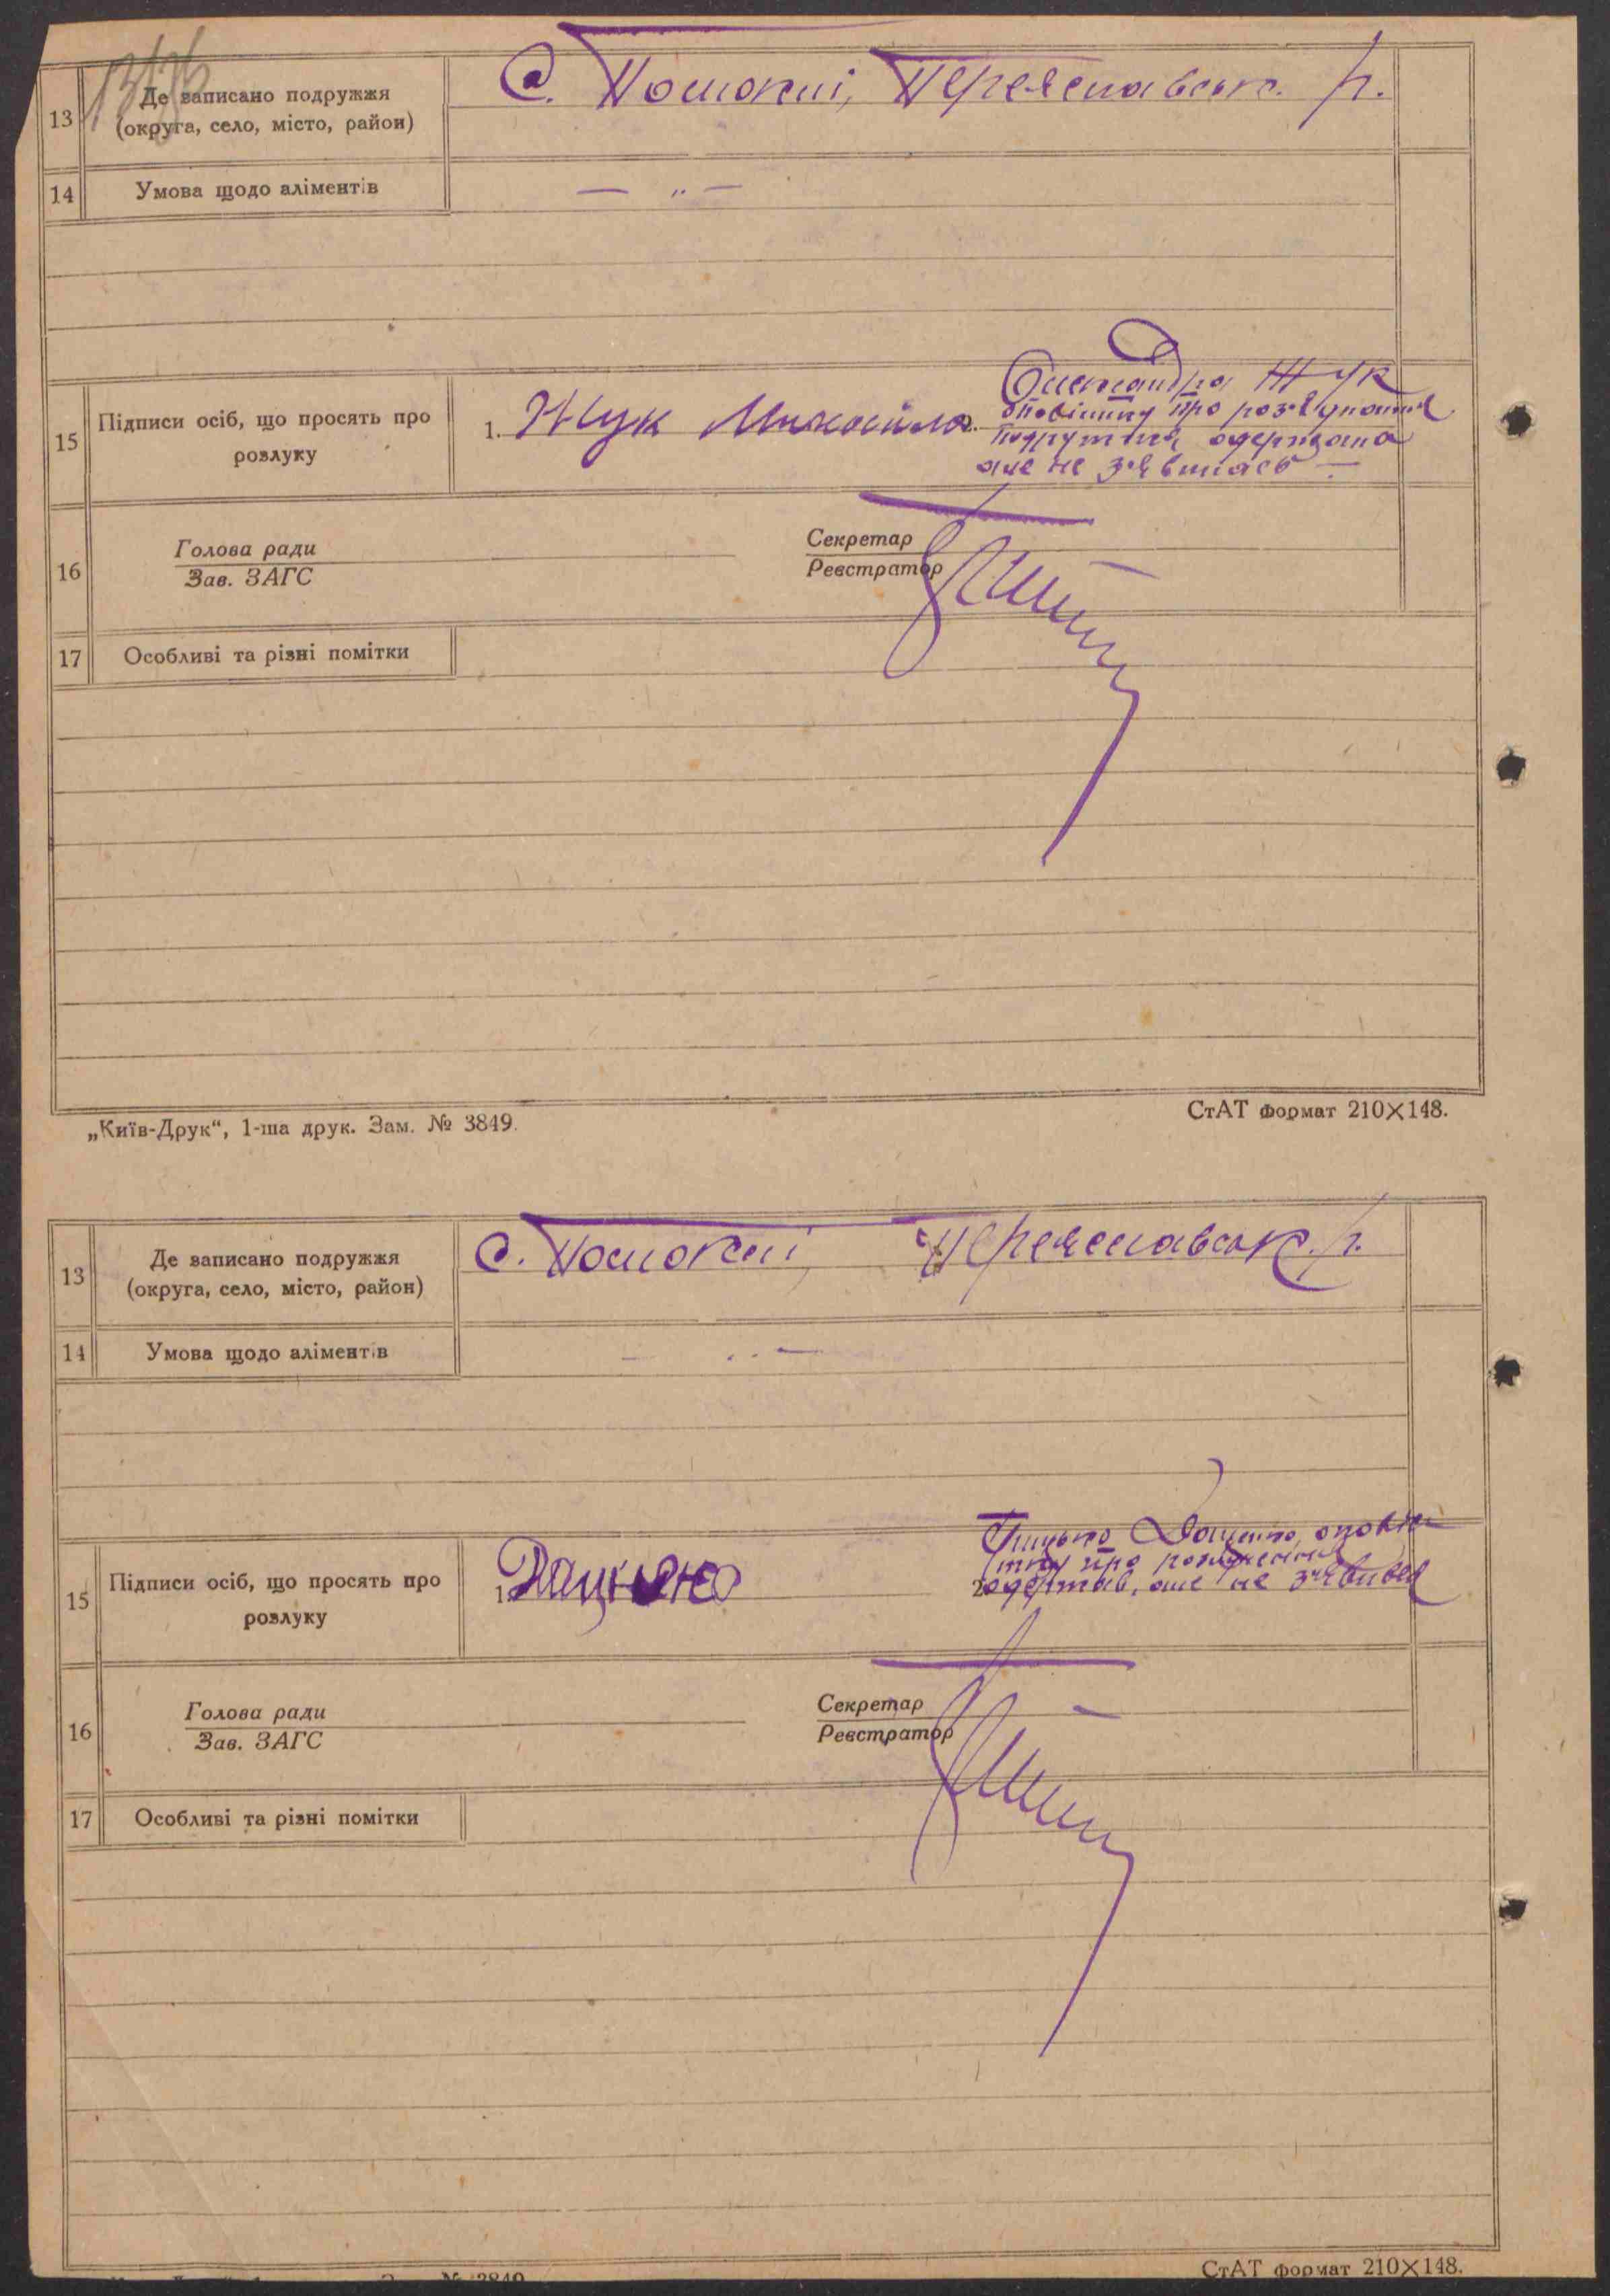 13 Де записано подружжя
(округа, село, місто, район)
С. Пологки, Переяславськ. р.
14 Умова щодо аліментів
— " —
15 Підписи осіб, що просять про
розлуку
1. Жук Микойла 2.
Олександра Жук
оповістку про розлучення
подружжя одержала
але не з'явилась —
16 Голова ради
Зав. ЗАГС
Секретар
Реєстратор
17 Особливі та різні помітки
„Київ-Друк“, 1-ша друк. Зам. № 3849.
СтАТ формат 210×148.
13 Де записано подружжя
(округа, село, місто, район)
С. Переяславськ. р.
14 Умова щодо аліментів
— " —
15 Підписи осіб, що просять про
розлуку
1. Даценко
Грицько Доценко, оповіс
тку про розлучення
2. одержав, але не з'явився
16 Голова ради
Зав. ЗАГС
Секретар
Реєстратор
17 Особливі та різні помітки
№ 3849
СтАТ формат 210×148.